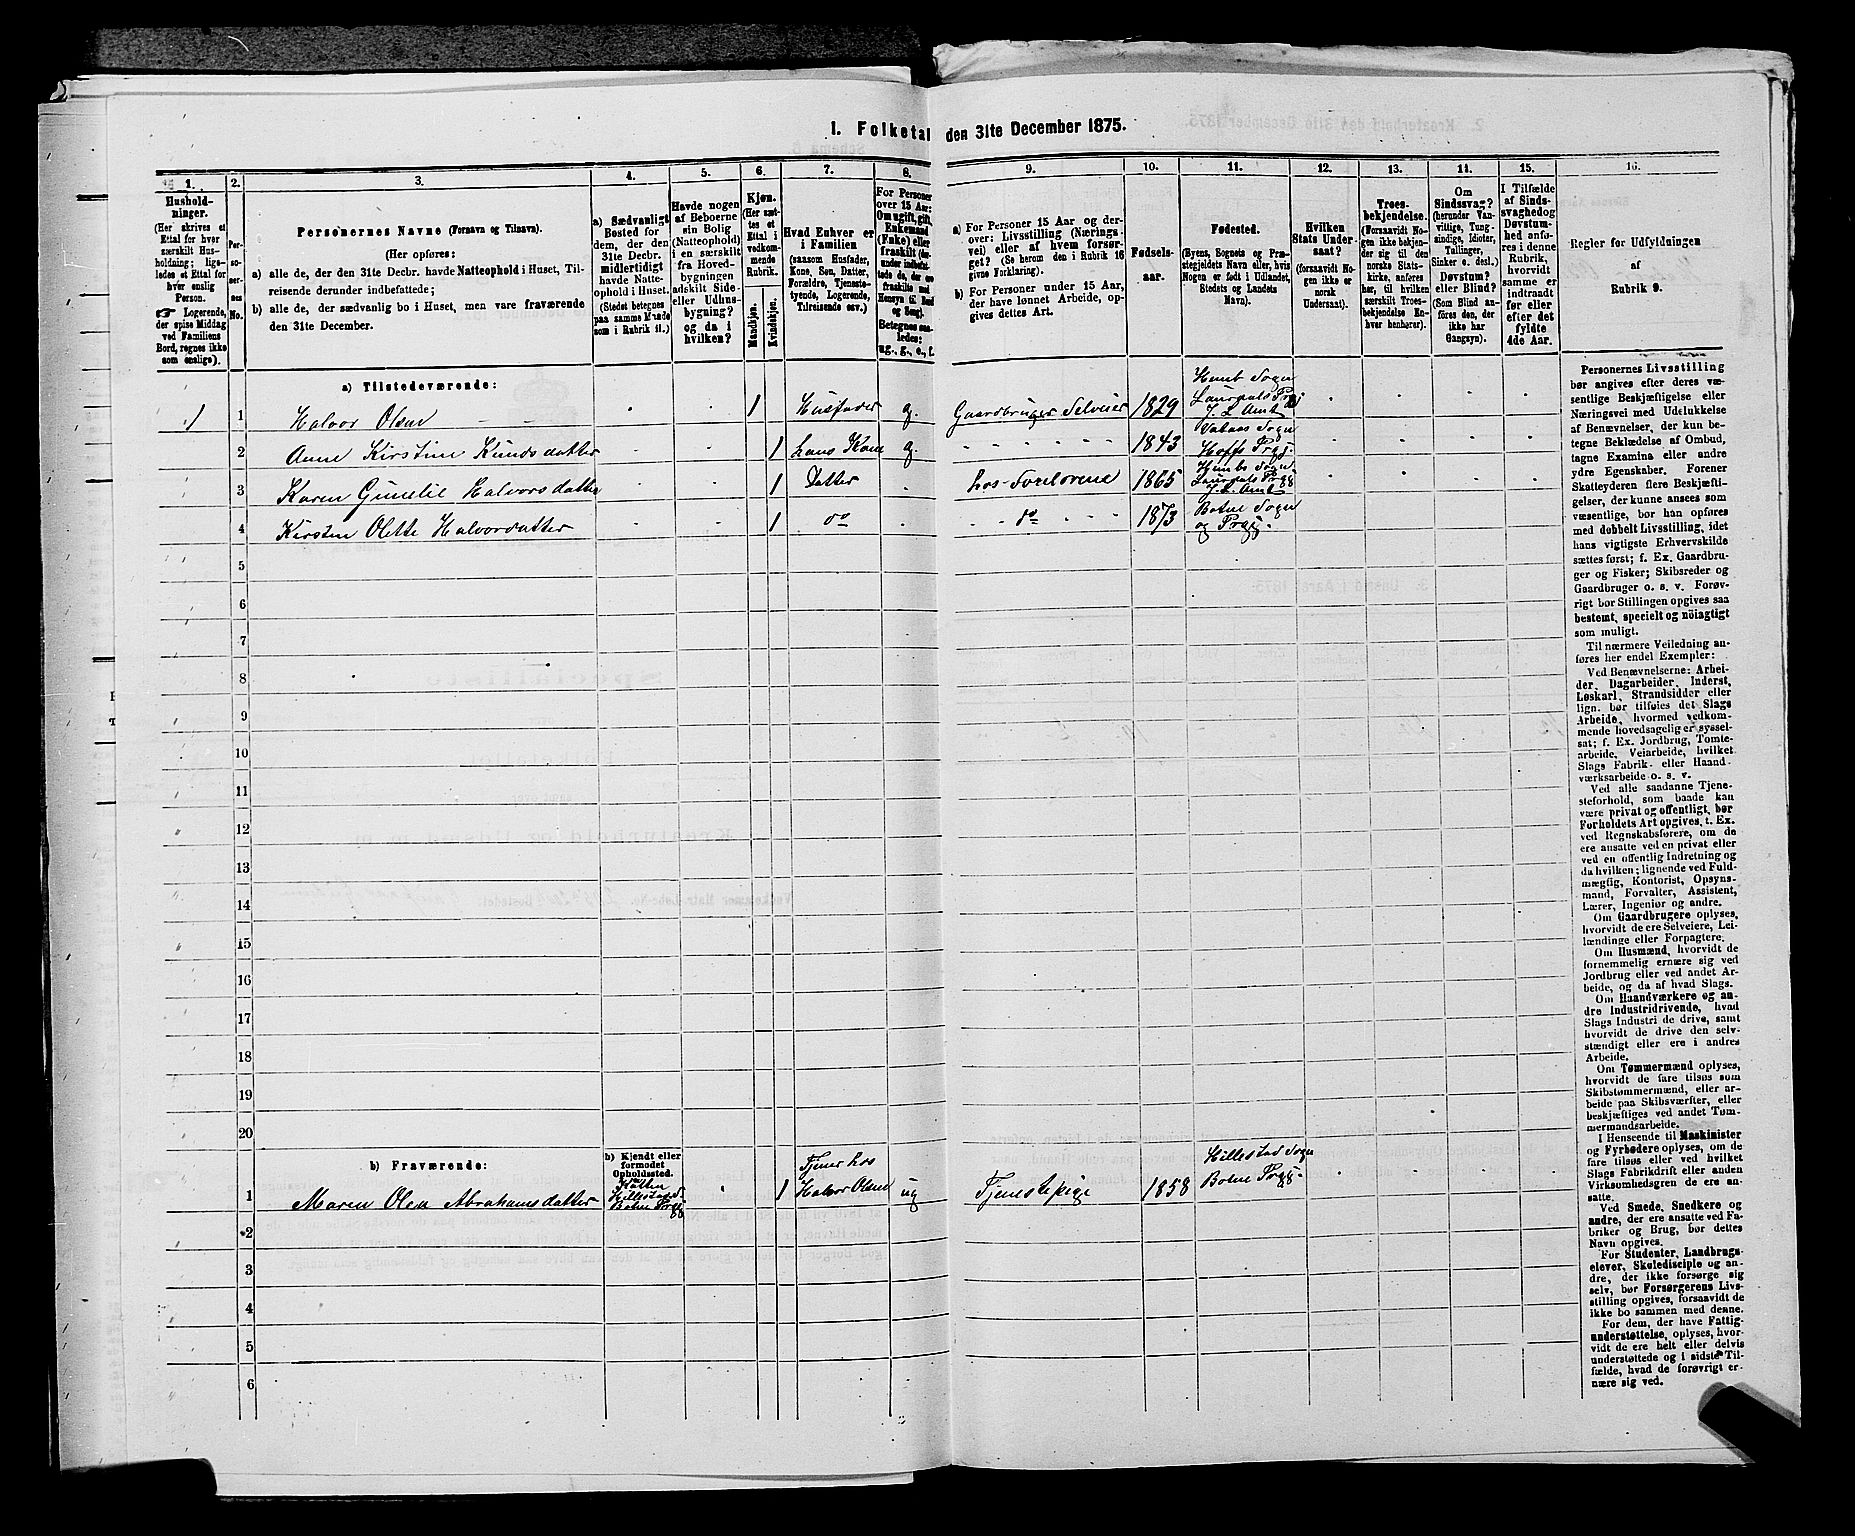 I. Folketal den 31te December 1875.
1. 2. 3. 4. 5. 6. 7. 8. 9. 10. 11. 12. 13. 14. 15. 16.
Hushold-
ninger.
(Her skrives et
Ettal for hver
særskilt Hus-
holdning; lige-
ledes et Ettal for
hver enslig
Person.
☞ Logerende,
der spise Middag
ved Familiens
Bord, regnes ikke
som enslige).
Per-
so-
ner-
nes
No.
Personernes Navne (Fornavn og Tilnavn).
(Her opføres:
a) alle de, der den 31te Decbr. havde Natteophold i Huset, Til-
reisende derunder indbefattede;
b) alle de, der sædvanlig bo i Huset, men vare fraværende
den 31te December.
a) Sædvanligt
Bosted for
dem, der den
31te Decbr.
midlertidigt
havde Natte-
ophold i Huset.
(Stedet betegnes
paa samme Maade
som i Rubrik 11.)
Havde nogen
af Beboerne
sin Bolig
(Natteophold)
i en særskilt
fra Hoved-
bygningen
adskilt Side-
eller Udhus-
bygning?
og da i
hvilken?
Kjøn.
(Her sæt-
tes et
Ettal i
vedkom-
mende
Rubrik.
Mandkjøn.
Kvindekjøn.
Hvad Enhver er
i Familien
(saasom Husfader,
Kone, Søn, Datter,
Forældre, Tjeneste-
tyende, Logerende,
Tilreisende osv.)
For Personer
over 15 Aar:
Om ugift, gift,
Enkemand
(Enke) eller
fraskilt
Betegnes saa-
ledes:
ug., g., e., f.
a) For Personer 15 Aar og der-
over: Livsstilling (Nærings-
vei) eller af hvem forsør-
get? (Se herom den i Rubrik 16
givne Forklaring).
b) For Personer under 15 Aar,
der have lønnet Arbeide, op-
gives dettes Art.
Fødsels-
aar.
Fødested.
(Byens, Sognets og Præ-
stegjeldets Navn eller, hvis
Nogen er født i Udlandet,
Stedets og Landets
Navn).
Hvilken
Stats Under-
saat?
(forsaavidt No-
gen ikke er
norsk
Undersaat).
Troes-
bekjendelse.
(Forsaavidt No-
gen ikke bekjen-
der sig til den
norske Stats-
kirke, anføres
her, til hvilken
særskilt Troes-
bekjendelse En-
hver henhører).
Om
Sindssvag?
(herunder Van-
vittige, Tung-
sindige, Idioter,
Tullinger,
Sinker o. desl.)
Døvstum?
eller Blind?
(Som Blind an-
føres den, der
ikke har
Gangsyn).
I Tilfælde
af Sinds-
svaghed og
Døvstum-
hed anfø-
res i denne
Rubrik,
hvorvidt
samme er
indtraadt
før eller
efter det
fyldte
4de Aar.
Regler for Udfyldningen
af
Rubrik 9.
a) Tilstedeværende:
1 1 Halvor Olsen 1 Husfader g. Gaardbruger Selveier 1829 Sogn Laurdals Prgj J. L. Amt
2 Anne Kirstine Knudsdatter 1 hans Kone g. 1843 Sogn Hoffs Prgj.
3 Karen Gunelie Halvorsdatter 1 Datter hos Foreldrene 1865 Sogn Laurdals Prgj J. L. Amt
4 Kirsten Olette Halvordatter 1 do do 1873 Botne Sogn og Prgj.
5
6
7
8
9
10
11
12
13
14
15
16
17
18
19
20
b) Fraværende:
b) Kjendt eller
formodet
Opholdssted.
1 Maren Olea Abrahamsdatter Hillestad Botne Prgj 1 Tjener hos Halvor Olsen ug Tjenestepige 1858 Hillestad Sogn Botne Prgj.
2
3
4
5
6
Personernes Livsstilling
bør angives efter deres væ-
sentlige Beskjæftigelse eller
Næringsvei med Udelukkelse
af Benævnelser, der kun be-
tegne Beklædelse af Ombud,
tagne Examina eller andre
ydre Egenskaber. Forener
Skatteyderen flere Beskjæfti-
gelser, der kunne ansees som
væsentlige, bør han opføres
med dobbelt Livsstilling, idet
hans vigtigste Erhvervskilde
sættes først; f. Ex. Gaardbru-
ger og Fisker; Skibsreder og
Gaardbruger o. s. v. Forøv-
rigt bør Stillingen opgives saa
bestemt, specielt og nöiagtigt
som muligt.
Til nærmere Veiledning an-
føres her endel Exempler:
Ved Benævnelserne: Arbei-
der, Dagarbeider, Inderst,
Løskarl, Strandsidder eller
lign. bør tilføies det Slags
Arbeide, hvormed vedkom-
mende hovedsagelig er syssel-
sat; f. Ex. Jordbrug, Tomte-
arbeide, Veiarbeide, hvilket
Slags Fabrik- eller Haand-
værksarbeide o. s. v.
Ved alle saadanne Tjene-
steforhold, som baade kan
være privat og offentligt, bør
Forholdets Art opgives, t. Ex.
ved Regnskabsførere, om de
ere ansatte ved en privat eller
ved en offentlig Indretning og
da hvilken; lignende ved Fuld-
mægtig, Kontorist, Opsyns-
mand, Forvalter, Assistent,
Lærer, Ingeniør og andre.
Om Gaardbrugere oplyses,
hvorvidt de ere Selveiere, Lei-
lændinge eller Forpagtere.
Om Husmænd, hvorvidt de
fornemmelig ernære sig ved
Jordbrug eller ved andet Ar-
beide, og da af hvad Slags.
Om Haandværkere og an-
dre Industridrivende, hvad
Slags Industri de drive, samt
hvorvidt de drive den selv-
stændigt eller ere i andres
Arbeide.
Om Tømmermænd oplyses,
hvorvidt de fare tilsøs som
Skibstømmermænd, eller ar-
beide paa Skibsværfter, eller
beskjæftiges ved andet Tøm-
mermandsarbeide.
I Henseende til Maskinister
og Fyrbødere oplyses, om de
fare tilsøs eller ved hvilket
Slags Fabrikdrift eller anden
Virksomhedsgren de ere an-
satte.
Ved Smede, Snedkere og
andre, der ere ansatte ved Fa-
briker og Brug, bør dettes
Navn opgives.
For Studenter, Landbrugs-
elever, Skoledisciple og an-
dre, der ikke forsørge sig
selv, bør Forsørgerens Livs-
stilling opgives, forsaavidt de
ikke bo sammen med denne.
For dem, der have Fattig-
understøttelse, oplyses, hvor-
vidt de ere helt eller delvis
understøttede og i sidste Til-
fælde, hvad de forøvrigt er-
nære sig ved.